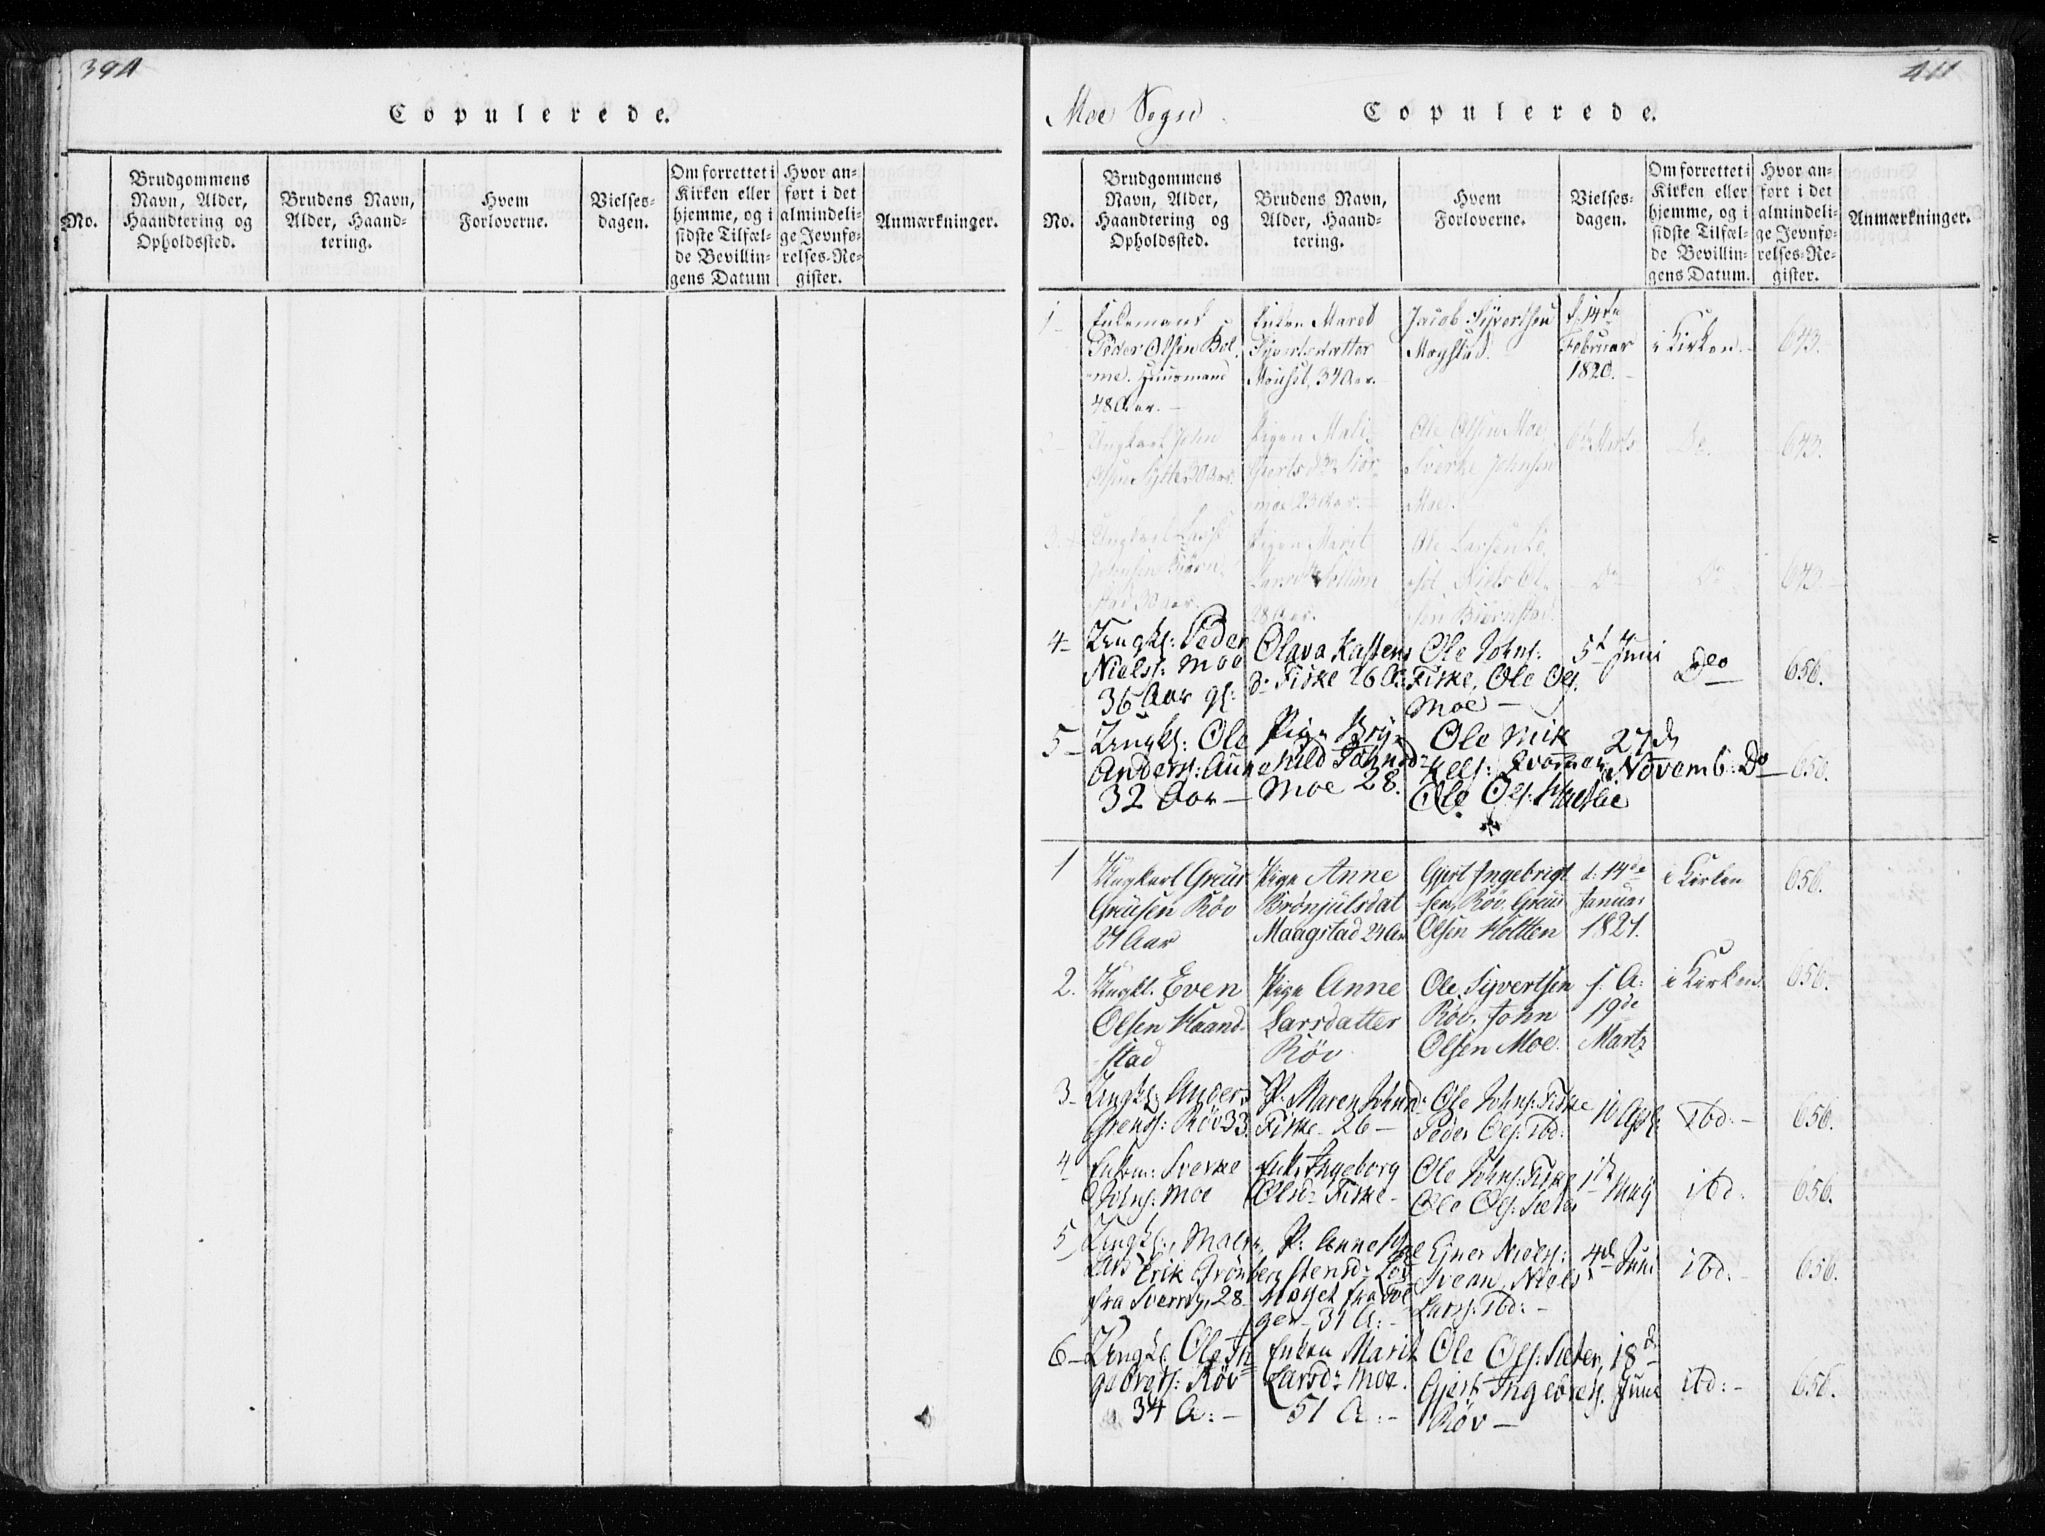 394
Copulerede.
No.
Brudgommens
Navn, Alder,
Haandtering og
Opholdssted.
Brudens Navn,
Alder, Haand-
tering.
Hvem
Forloverne.
Vielses-
dagen.
Om forrettet i
Kirken eller
hjemme, og i
sidste Tilfæl-
de Bevillin-
gens Datum
Hvor an-
ført i det
almindeli-
ge Jevnfø-
relses-Re-
gister.
Anmærkninger.
411
Moe Sogn
Copulerede.
No.
Brudgommens
Navn, Alder,
Haandtering og
Opholdssted.
Brudens Navn,
Alder, Haand-
tering.
Hvem
Forloverne.
Vielses-
dagen.
Om forrettet i
Kirken eller
hjemme, og i
sidste Tilfæl-
de Bevillin-
gens Datum.
Hvor an-
ført i det
almindeli-
ge Jevnfø-
relses-Re-
gister.
Anmærkninger.
1
Enkemand
Peder Olsen Bol-
me. Huusmand
48 Aar.
Enken Maret
Syvertsdatter
34 Aar.
Jacob Syvertsen
Mogstad.
d. 14de
Februar
1820.
i Kirken
643.
Ungkarl John
Olsen 30 Aar.
Pigen Mali
Ole Olsen Moe
Sverke Johnsen
Moe.
Marts
Do.
643.
3.
Ungkarl Lars
Johnsen Biörn-
stad 30 Aar.
Pigen Marit
28 Aar.
Ole Larsen
Niels Ol-
sen Biörnstad
Do
Do
643
4
Ungkl: Peder
Niels: Moe
36 Aar gl:
Olava Kastens
d: Fiske 26 A:
Ole Johns:
Fiske, Ole Ols:
Moe
5t Juni
Do
656.
5
Ungkl: Ole
Anders: Aune
32 Aar
Pige Bry-
hild Johnsd:
Moe 28.
Ole Mik
kels: Qvame
Ole Ols:
27d
Novemb:
Do
656.
1
Ungkarl Greus
Greusen Röv
24 Aar
Pige Anne
Brönjulsdat
Maagstad 24 Aar
Gjert Ingebrigt
sen, Röv, Greus
Olsen Holtten
d. 14de
Januar
1821.
i Kirken
656.
2.
Ungkl. Even
Olsen Haand-
stad
Pige Anne
Larsdatter
Röv
Ole Syvertsen
Röv, John
Olsen Moe.
s: A:
19de
Martz
i Kirken
656.
3
Ungkl: Anders
Grends: Röv 33
P. Maren Johnsd:
Fiske 26
Ole Johns: Fiske
Peder Ols: Ibd:
10 Apl:
Ibd:
656.
4
Enkm: Sverke
Johns: Moe
Enke Ingeborg
Olsd: Fiske
Ole Johns: Fiske
Ole Ols: Sæter
1de
May
ibd:
656.
5
Ungkl:
Lars Erik Grönberg
fra Sverrig, 28
P: Anne
stensd:
fra
31 A:
Ejner Niels:
Svean, Niels
Lars: Ibd:
4de Juni
ibd:
656.
6
Ungkl: Ole In
gebrets: Röv
34 A:
Enken Marit
Larsd: Moe.
51 A:
Ole Ols: Sæter,
Gjert Ingebrets:
Röv
18de
Juni
ibd:
656.